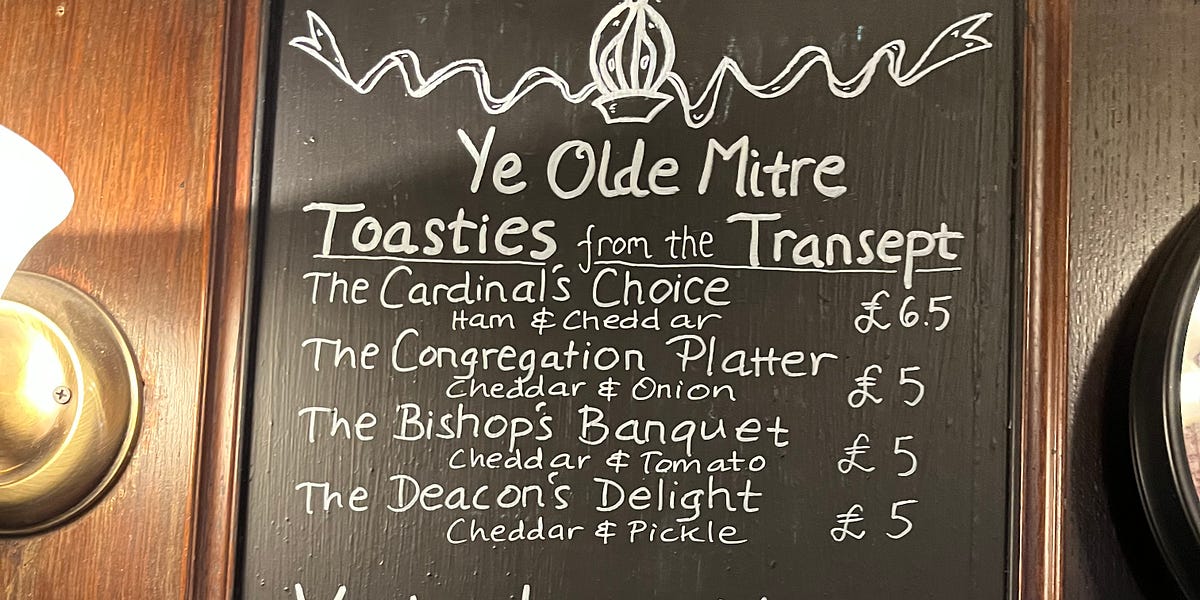 Ye Olde Mitre
Toasties from the Transept
The Cardinal's Choice
Ham & Cheddar £6.5
The Congregation Platter
Cheddar & Onion £5
The Bishop's Banquet
Cheddar & Tomato £5
The Deacon's Delight
Cheddar & Pickle £5